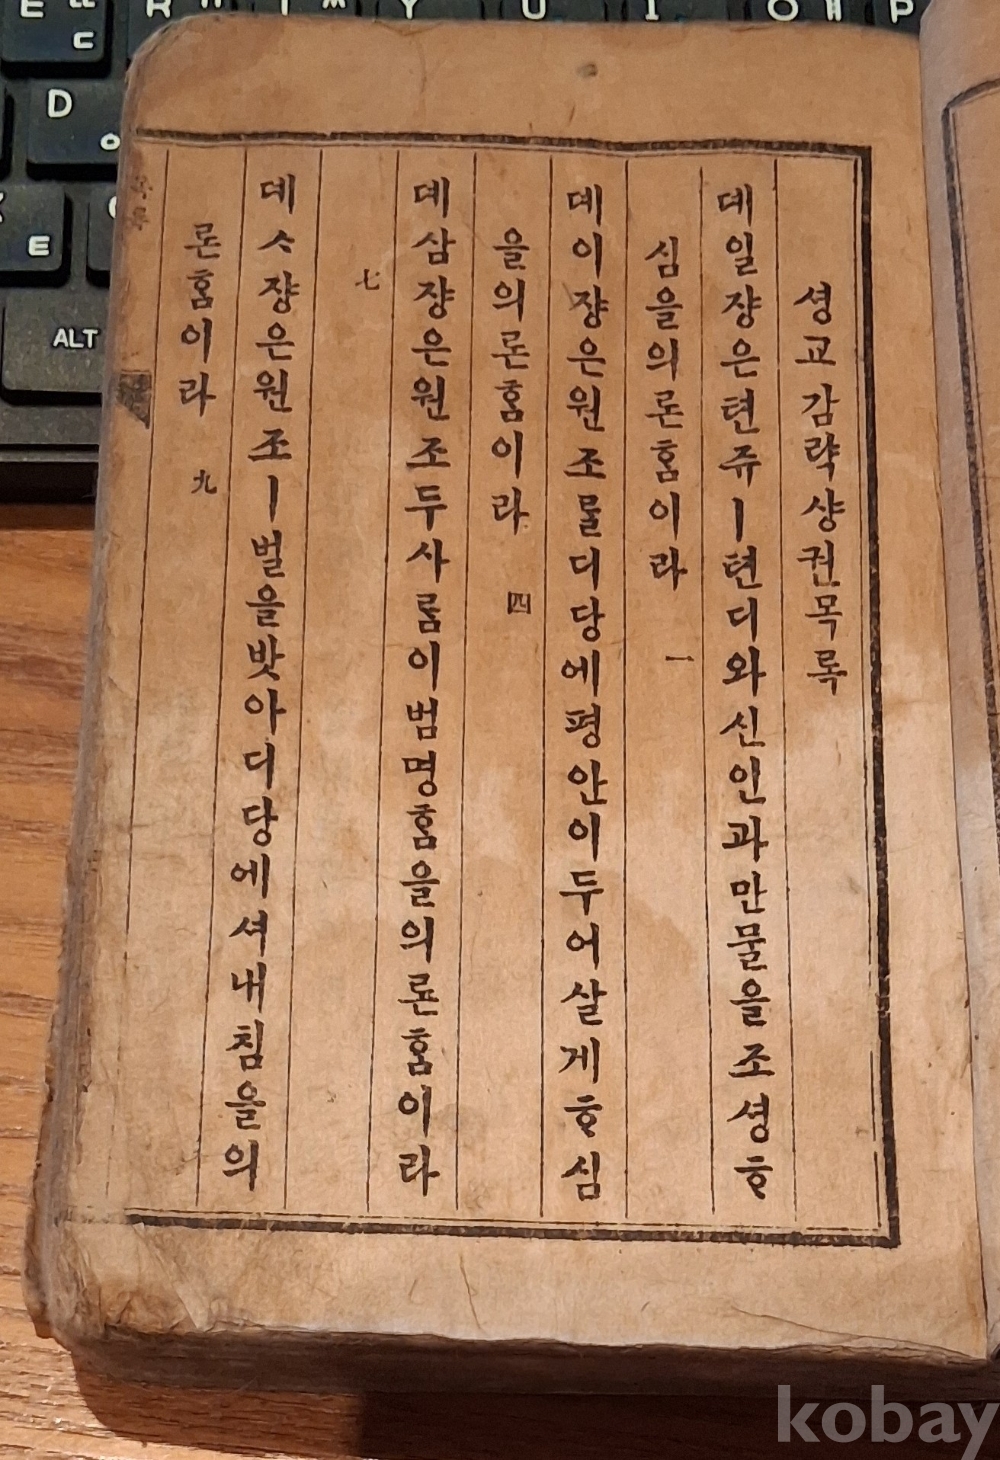 셩교감략샹권목록
뎨일쟝은텬쥬ㅣ텬디와신인과만물을조셩ᄒᆞ
심을의론홈이라 一
뎨이쟝은원조를디당에평안이두어살게ᄒᆞ심
을의론홈이라 四
뎨삼쟝은원조두사ᄅᆞᆷ이범명홈을의론홈이라
七
뎨ᄉᆞ쟝은원조ㅣ벌을밧아디당에셔내침을의
론홈이라 九
E
ㄷ
R
T
Y
U
I
P
D
ㅇ
ㅌ
ALT
kobay